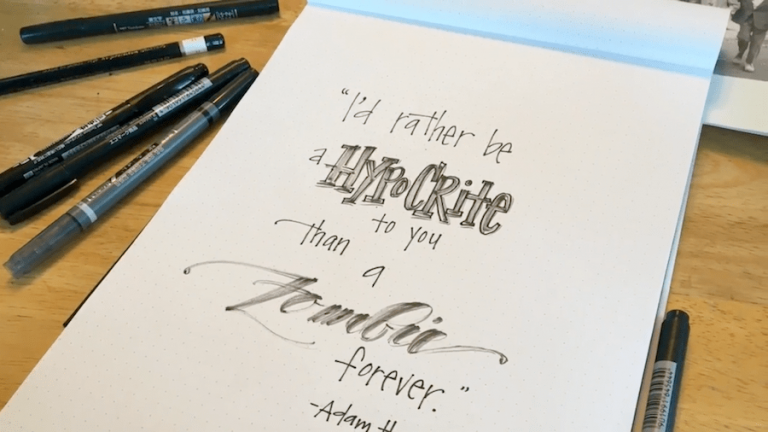 "I'd rather be
a HYPoCRite
to you
than
a
Zombie
forever."
-Adam H